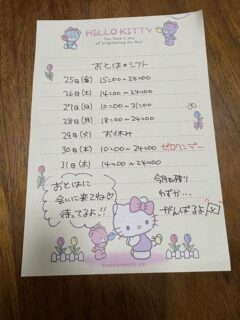 HELLO KITTY
You have a way
of brightening my day!
おとはのシフト
25日(金) 15:00~24:00
26日(土) 14:00~24:00
27日(日) 10:00~21:00
28日(月) 18:00~24:00
29日(火) お休み
30日(水) 10:00~24:00 ゼロワンデー
31日(木) 14:00~24:00
おとはに
会いに来てね♡
待ってるよ!!
今月も残り
わずか...
がんばるよ